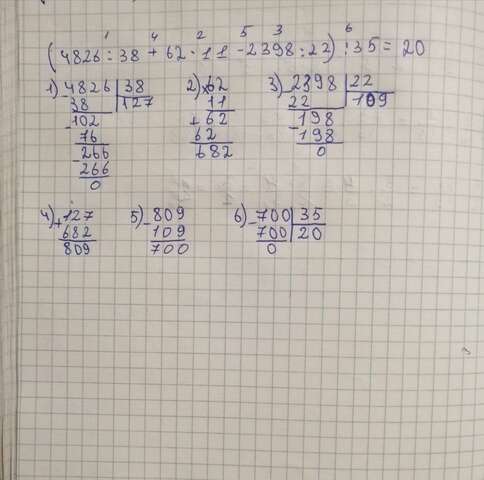 1 4 2 5 3 6
(4826 : 38 + 62 · 11 - 2398 : 22) : 35 = 20
1) 4826 | 38 2) x62 3) 2398 | 22
- 38 127 11 22 109
-102 + 62 - 198
76 62 198
- 266 682 0
266
0
4) + 127 5) - 809 6) - 700 | 35
682 109 700 20
809 700 0